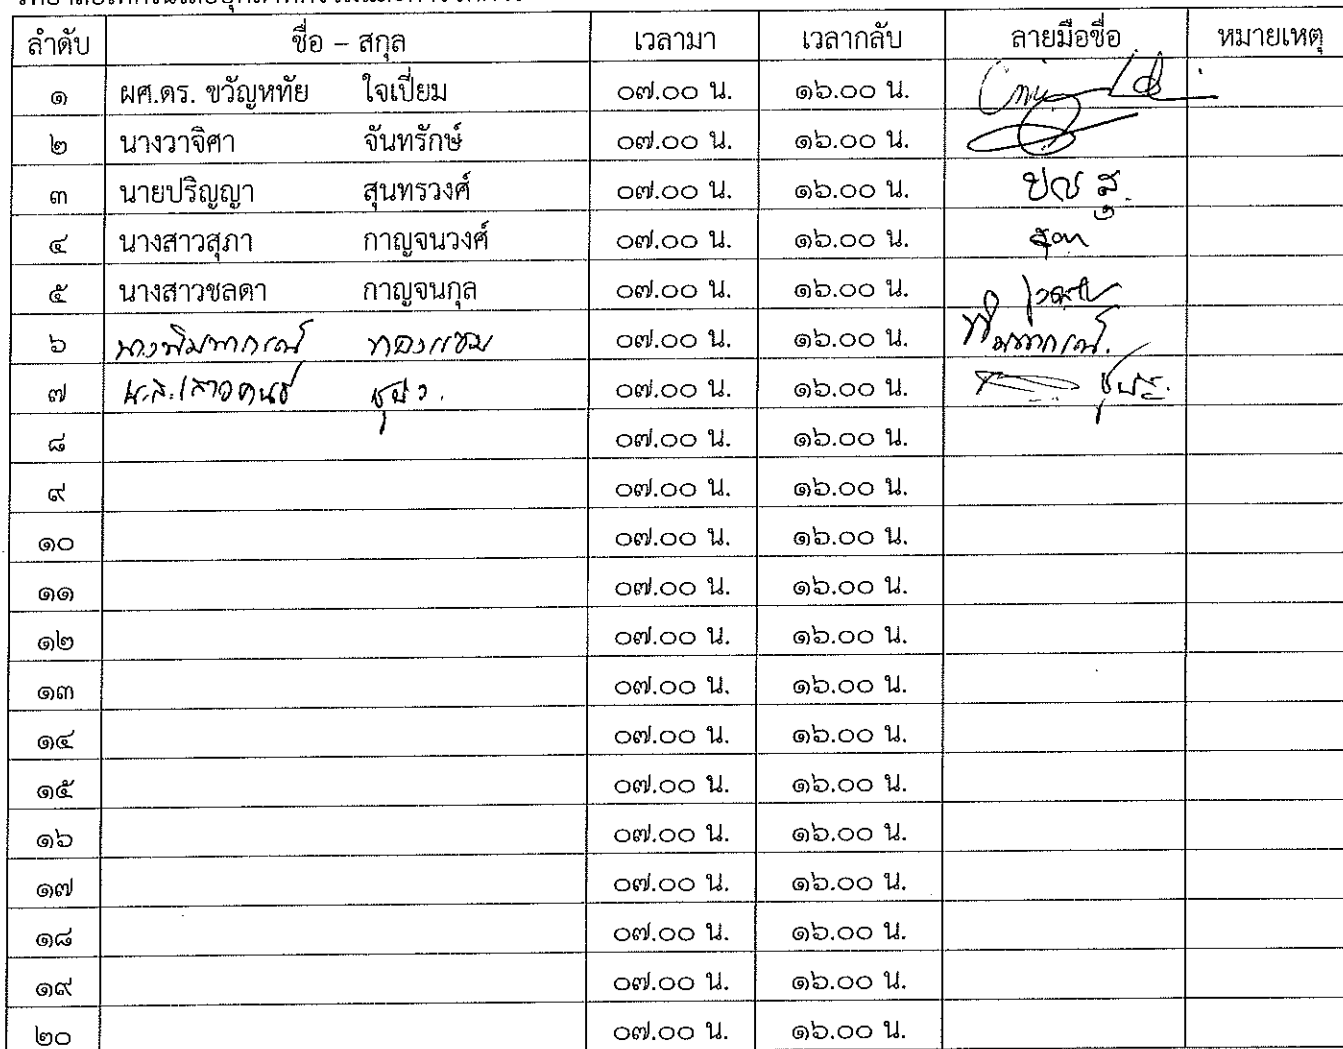 ลำดับ ชื่อ – สกุล เวลามา เวลากลับ ลายมือชื่อ หมายเหตุ
๑ ผศ.ดร. ขวัญหทัย ใจเปี่ยม ๐๗.๐๐ น. ๑๖.๐๐ น.
๒ นางวาจิศา จันทรักษ์ ๐๗.๐๐ น. ๑๖.๐๐ น.
๓ นายปริญญา สุนทรวงศ์ ๐๗.๐๐ น. ๑๖.๐๐ น.
๔ นางสาวสุภา กาญจนวงศ์ ๐๗.๐๐ น. ๑๖.๐๐ น.
๕ นางสาวชลดา กาญจนกุล ๐๗.๐๐ น. ๑๖.๐๐ น.
๖ ๐๗.๐๐ น. ๑๖.๐๐ น.
๗ น.ส. ๐๗.๐๐ น. ๑๖.๐๐ น.
๘ ๐๗.๐๐ น. ๑๖.๐๐ น.
๙ ๐๗.๐๐ น. ๑๖.๐๐ น.
๑๐ ๐๗.๐๐ น. ๑๖.๐๐ น.
๑๑ ๐๗.๐๐ น. ๑๖.๐๐ น.
๑๒ ๐๗.๐๐ น. ๑๖.๐๐ น.
๑๓ ๐๗.๐๐ น. ๑๖.๐๐ น.
๑๔ ๐๗.๐๐ น. ๑๖.๐๐ น.
๑๕ ๐๗.๐๐ น. ๑๖.๐๐ น.
๑๖ ๐๗.๐๐ น. ๑๖.๐๐ น.
๑๗ ๐๗.๐๐ น. ๑๖.๐๐ น.
๑๘ ๐๗.๐๐ น. ๑๖.๐๐ น.
๑๙ ๐๗.๐๐ น. ๑๖.๐๐ น.
๒๐ ๐๗.๐๐ น. ๑๖.๐๐ น.